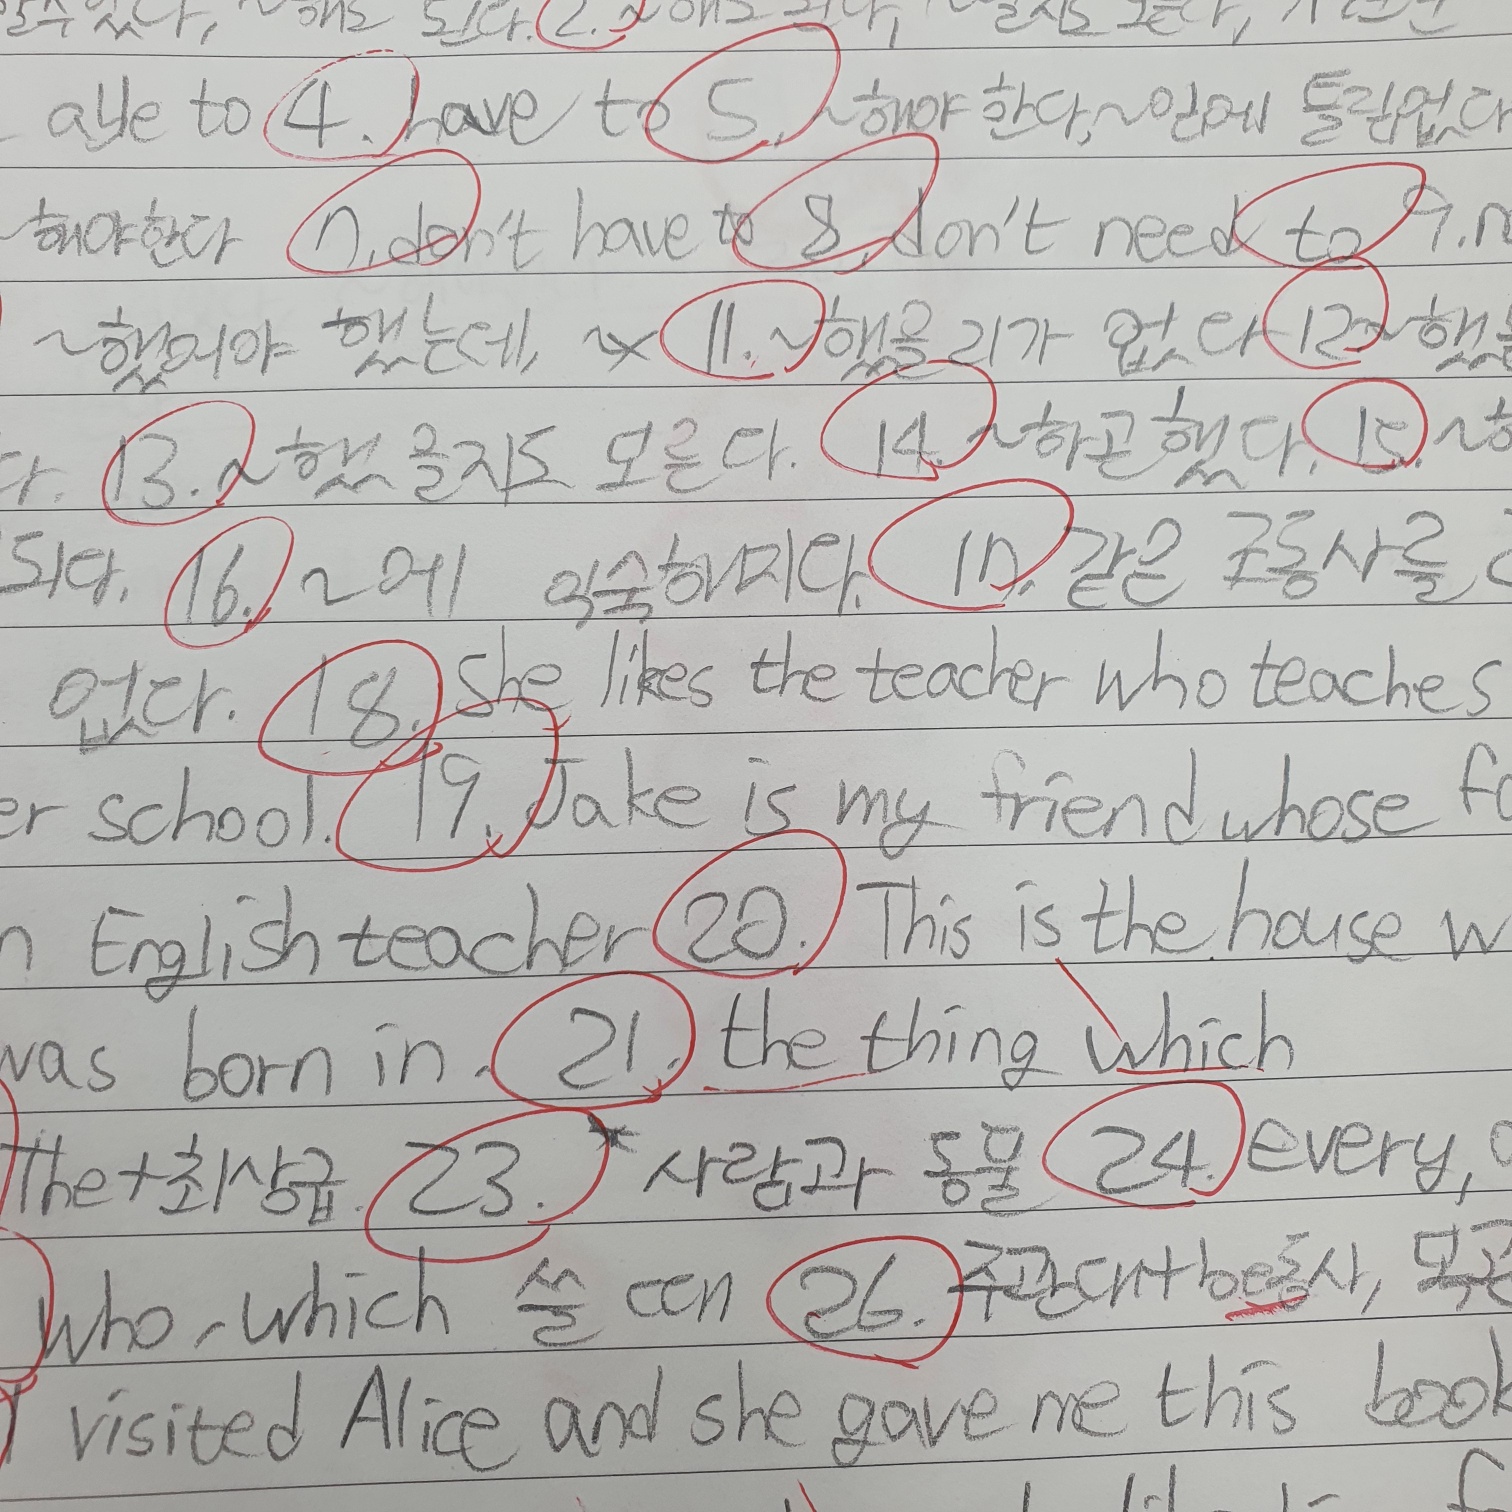 할수있다, ~해도 된다. 2. ~해도 되다, ~일지도 모른다,
able to 4. have to 5. ~해야 한다, ~임에 틀림없다
~해야한다 7. don't have to 8. don't need to 9.
~했어야 했는데, ~x 11. ~했을리가 없다 12 ~했을
다. 13. ~했을지도 모른다. 14. ~하곤했다. 15. ~하
되다. 16. ~에 익숙해지다. 17. 같은 조동사를
없다. 18. She likes the teacher who teaches
er school. 19. Jake is my friend whose fa
n English teacher 20. This is the house w
was born in. 21. the thing which
The+최상급. 23. *사람과 동물 24. every,
who, which 쓸 때 26. 주관대+be동사, 목관
I visited Alice and she gave me this book